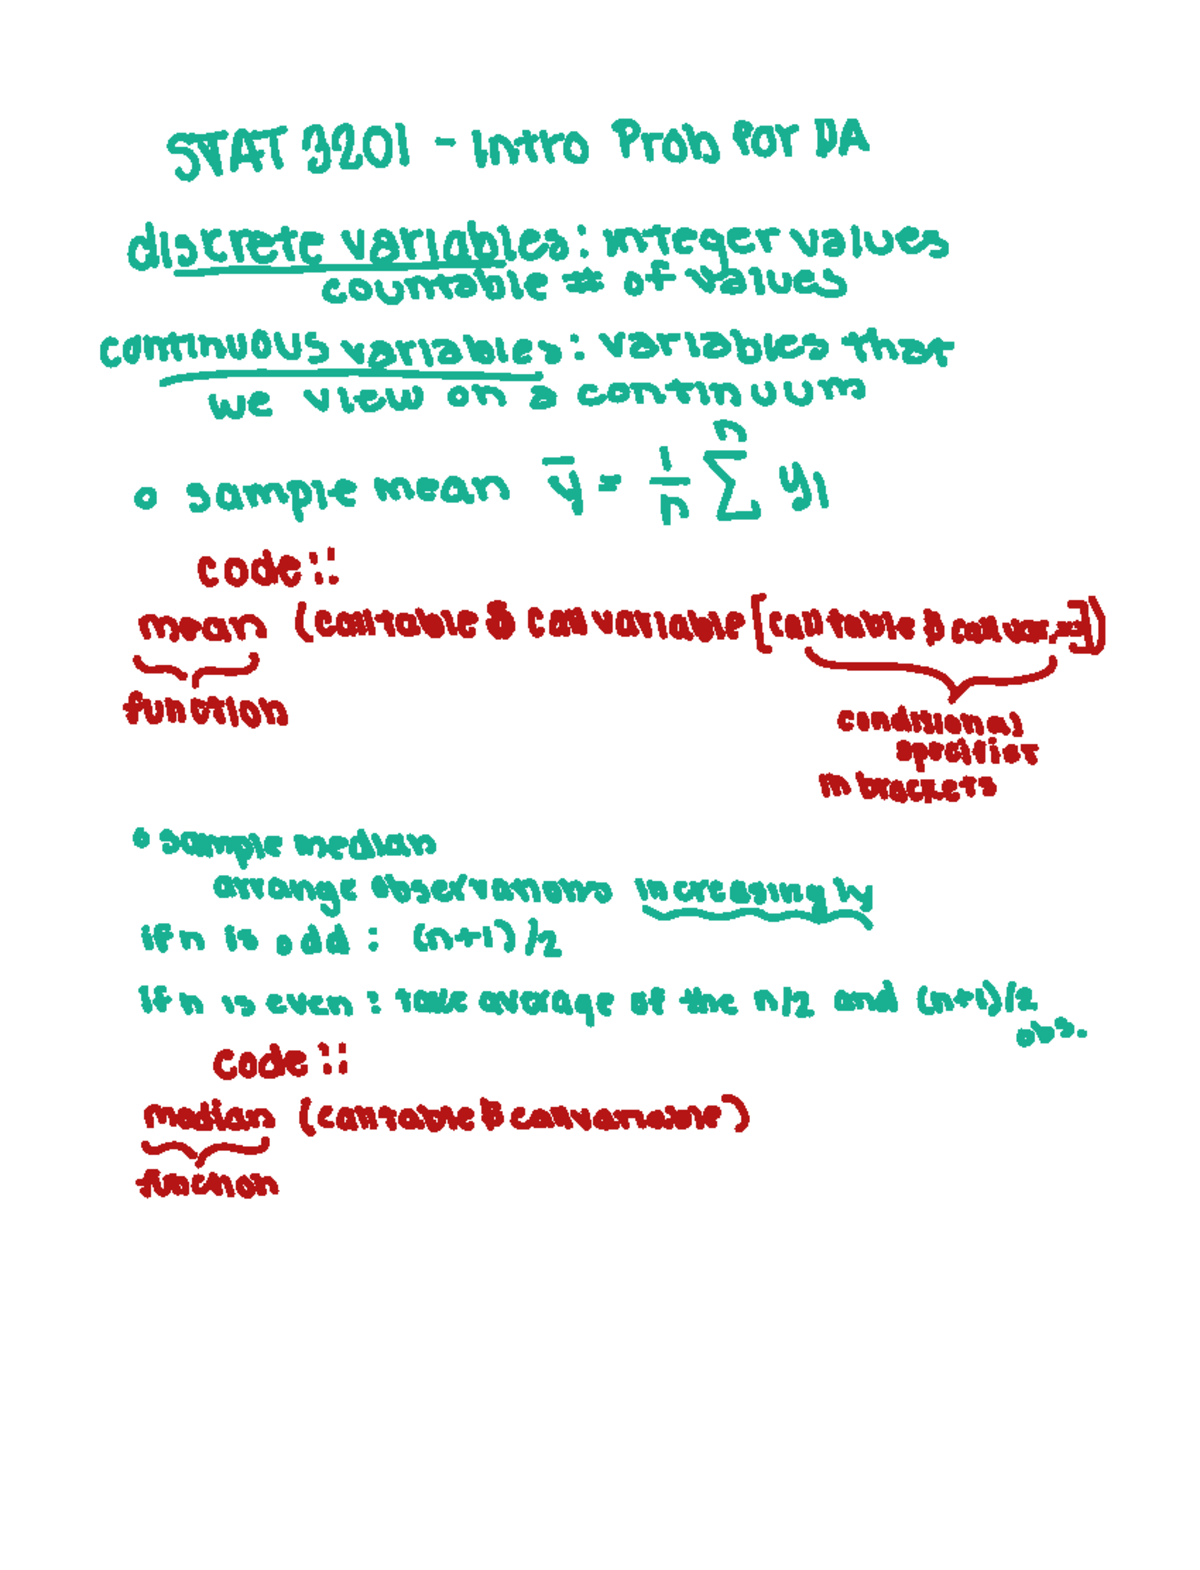 STAT 3201 - Intro Prob for DA
discrete variables: integer values
countable # of values
continuous variables: variables that
we view on a continuum
o sample mean ȳ = 1/n n∑ yi
code::
mean (calltable $ callvariable [calltable $ callvar.==])
function
conditional
specifier
in brackets
o sample median
arrange observations increasingly
if n is odd : (n+1)/2
if n is even : take average of the n/2 and (n+1)/2
obs.
code::
median (calltable $ callvariable)
function